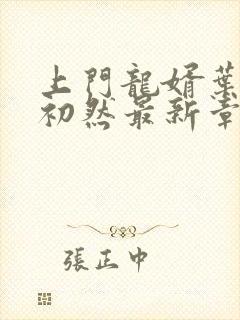 上門龍婿葉
初然最新章
張正中